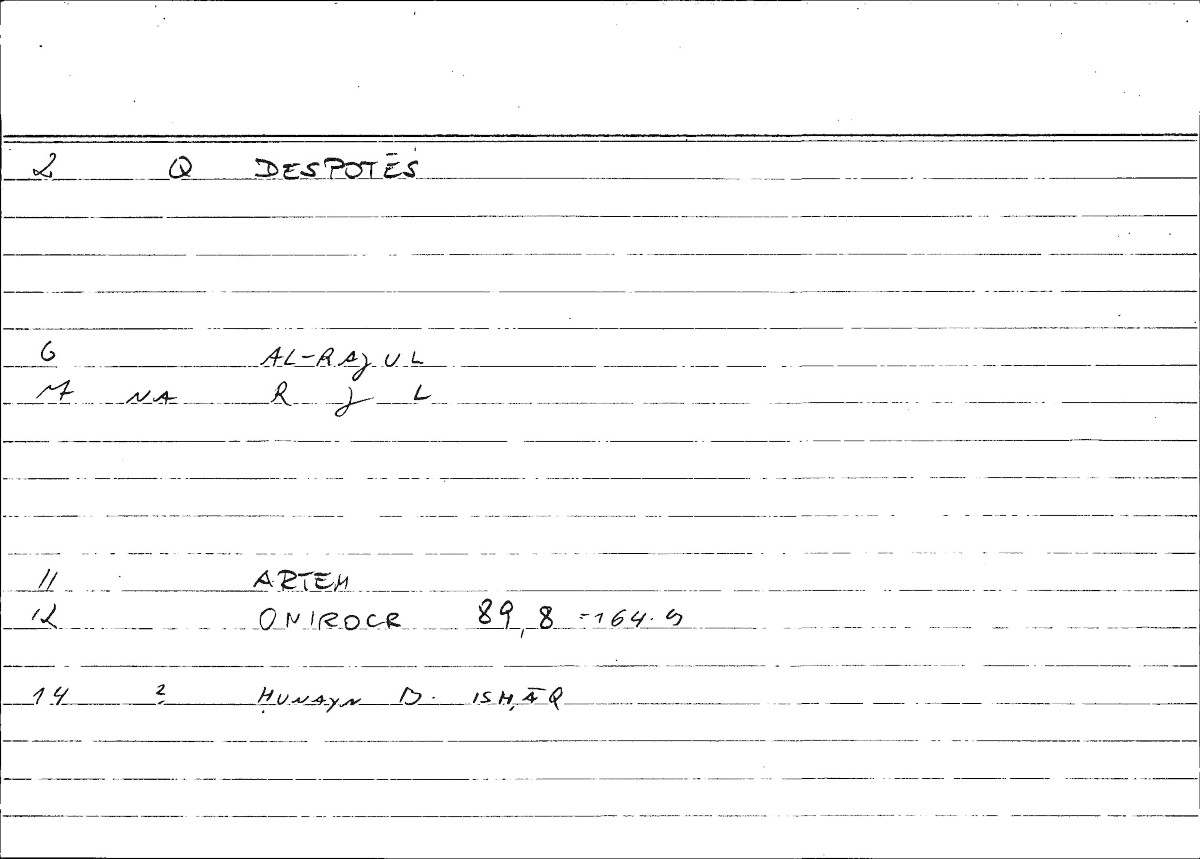 2 Q DESPOTĒS
6 AL-RAJUL
M NA R J L
11 ARTEM
12 ONIROCR 89,8 = 164.9
14 ? ḤUNAYN B. ISḤĀQ